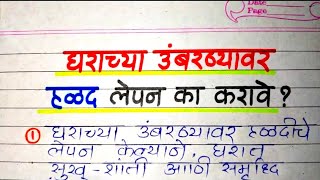 Date
Page
घराच्या उंबरठ्यावर
हळद लेपन का करावे?
① घराच्या उंबरठ्यावर हळदीचे
लेपन केल्याने, घरात
सुख-शांती आणि समृध्दि